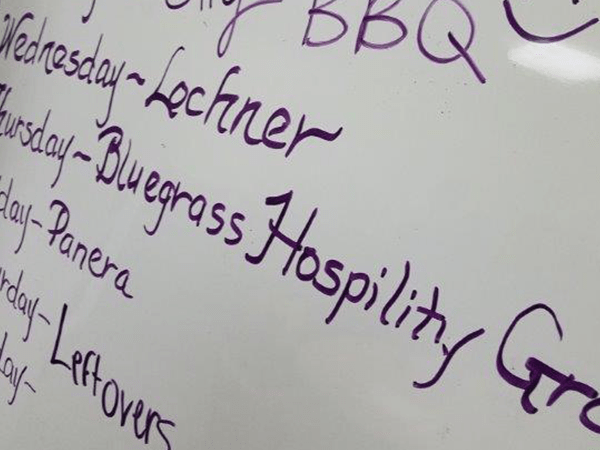 BBQ
Wednesday~Lochner
Thursday~Bluegrass Hospility Gro
day-Panera
rday-Leftovers
day-